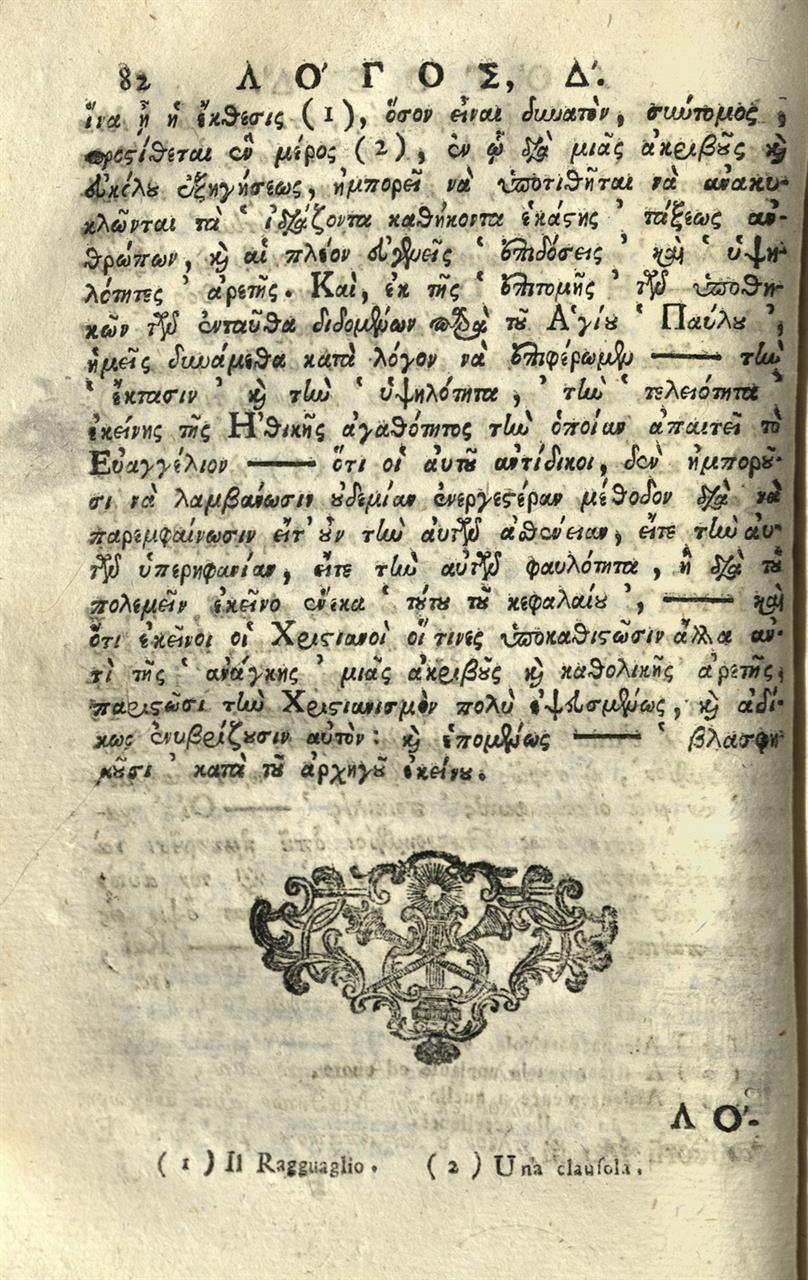 82 ΛΟ'ΓΟΣ, Δ'.
ἵνα ᾖ ἡ ἔκθεσις (1), ὅσον εἶναι δυνατὸν, σύντομος,
προστίθεται ἓν μέρος (2), ἐν ᾧ διὰ μιᾶς ἀκριβοῦς καὶ
ἐξηγήσεως, ἠμπορεῖ νὰ ὑποτιθῆται νὰ ἀνακυ-
κλῶνται τὰ ‘ ἰδιάζοντα καθήκοντα ἑκάστης ’ τάξεως ἀν-
θρώπων, καὶ αἱ πλέον ‘ ἐπιδόσεις ’ καὶ ‘ ὑψη-
λότητες ’ ἀρετῆς. Καὶ, ἐκ τῆς ‘ ἐπιτομῆς ’ τῶν ὑποθη-
κῶν τῶν ἐνταῦθα διδομένων παρὰ τοῦ Ἁγίου ‘ Παύλου ’,
ἡμεῖς δυνάμεθα κατὰ λόγον νὰ ἐπιφέρωμεν —— τὴν
‘ ἔκτασιν ’ καὶ τὴν ‘ ὑψηλότητα, ’ τὴν ‘ τελειότητα ’
ἐκείνης τῆς Ἠθικῆς ἀγαθότητος τὴν ὁποίαν ἀπαιτεῖ τὸ
Εὐαγγέλιον —— ὅτι οἱ αὐτοῦ ἀντίδικοι, δὲν ἠμποροῦ-
σι νὰ λαμβάνωσιν οὐδεμίαν ἐνεργεστέραν μέθοδον διὰ νὰ
παρεμφαίνωσιν εἴτ' οὖν τὴν αὐτῶν ἀσθένειαν, εἴτε τὴν αὐ-
τῶν ὑπερηφανίαν, εἴτε τὴν αὐτῶν φαυλότητα, ἢ διὰ τοῦ
πολεμεῖν ἐκεῖνο ἕνεκα ‘ τούτου τοῦ κεφαλαίου ’, —— καὶ
ὅτι ἐκεῖνοι οἱ Χριστιανοὶ οἵ τινες ὑποκαθιστῶσιν ἄλλα ἀν-
τὶ τῆς ‘ ἀνάγκης ’ μιᾶς ἀκριβοῦς καὶ καθολικῆς ἀρετῆς,
παριστῶσι τὸν Χριστιανισμὸν πολὺ ἐψευσμένως, καὶ ἀδί-
κως ἐνυβρίζουσιν αὐτὸν: καὶ ἑπομένως —— ‘ βλασφη-
μοῦσι ’ κατὰ τοῦ ἀρχηγοῦ ἐκείνου.
ΛΟ'-
(1) Il Ragguaglio. (2) Una clausola.